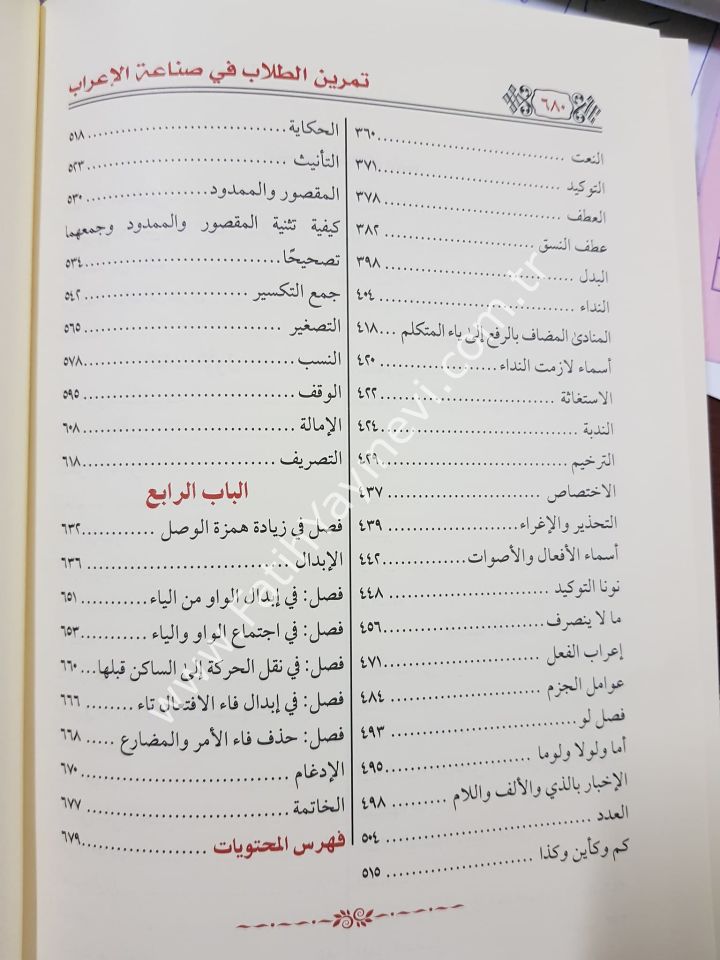 تمرين الطلاب في صناعة الإعراب
٦٨٠
النعت ................ ٣٦٠
التوكيد ................ ٣٧١
العطف ................ ٣٧٨
عطف النسق ................ ٣٨٢
البدل ................ ٣٩٨
النداء ................ ٤٠٤
المنادى المضاف بالرفع إلى ياء المتكلم ... ٤١٨
أسماء لازمت النداء ................ ٤٢٠
الاستغاثة ................ ٤٢٢
الندبة ................ ٤٢٤
الترخيم ................ ٤٢٩
الاختصاص ................ ٤٣٧
التحذير والإغراء ................ ٤٣٩
أسماء الأفعال والأصوات ................ ٤٤٢
نونا التوكيد ................ ٤٤٨
ما لا ينصرف ................ ٤٥٦
إعراب الفعل ................ ٤٧١
عوامل الجزم ................ ٤٨٤
فصل لو ................ ٤٩٣
أما ولولا ولوما ................ ٤٩٥
الإخبار بالذي والألف واللام ......... ٤٩٨
العدد ................ ٥٠٤
كم وكأين وكذا ................ ٥١٥
الحكاية ................ ٥١٨
التأنيث ................ ٥٢٣
المقصور والممدود ................ ٥٣٠
كيفية تثنية المقصور والممدود وجمعهما
تصحيحًا ................ ٥٣٤
جمع التكسير ................ ٥٤٢
التصغير ................ ٥٦٥
النسب ................ ٥٧٨
الوقف ................ ٥٩٥
الإمالة ................ ٦٠٨
التصريف ................ ٦١٨
الباب الرابع
فصل في زيادة همزة الوصل ............ ٦٣٢
الإبدال ................ ٦٣٦
فصل: في إبدال الواو من الياء ........... ٦٥١
فصل: في اجتماع الواو والياء ........... ٦٥٣
فصل: في نقل الحركة إلى الساكن قبلها... ٦٦٠
فصل: في إبدال فاء الافتعال تاء ........ ٦٦٦
فصل: حذف فاء الأمر والمضارع ..... ٦٦٨
الإدغام ................ ٦٧٠
الخاتمة ................ ٦٧٧
فهرس المحتويات ................ ٦٧٩
www.FatihYayinevi.com.tr